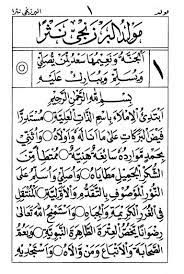 ١
مولد البرزنجي نثرا
١
الجنة ونعيمها سعد لمن يصلي
ويسلم ويبارك عليه
بسم الله الرحمن الرحيم
ابتدئ الإملاء باسم الذات العلية ۞ مستدرا
فيض البركات على ما أناله وأولاه ۞ وأثني
بحمد موارده سائغة هنية ۞ ممتطيا من
الشكر الجميل مطاياه ۞ وأصلي وأسلم على
النور الموصوف بالتقدم والأولية ۞ المنتقل
في الغرر الكريمة والجباه ۞ وأستمنح الله تعالى
رضوانا يخص العترة الطاهرة النبوية ۞ ويعم
الصحابة والأتباع ومن والاه ۞ وأستجديه